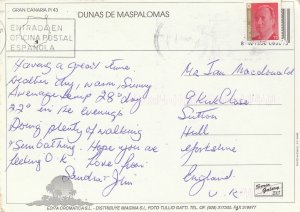 GRAN CANARIA PI 43
DUNAS DE MASPALOMAS
ENTRADA EN
OFICINA POSTAL
ESPAÑOLA
Having a great time
weather dry, warm, sunny
Average temp 28° day
22° in the evenings
Doing plenty of walking
Sunbathing. Hope you are
feeling O.K. Love from
Sandra Jim
Mr Ian Macdonald
9 Kirk Close
Sutton
Hull
Yorkshire
England.
U.K.
EDITA CROMATICA S.L. - DISTRIBUYE IMAGINA S.L.